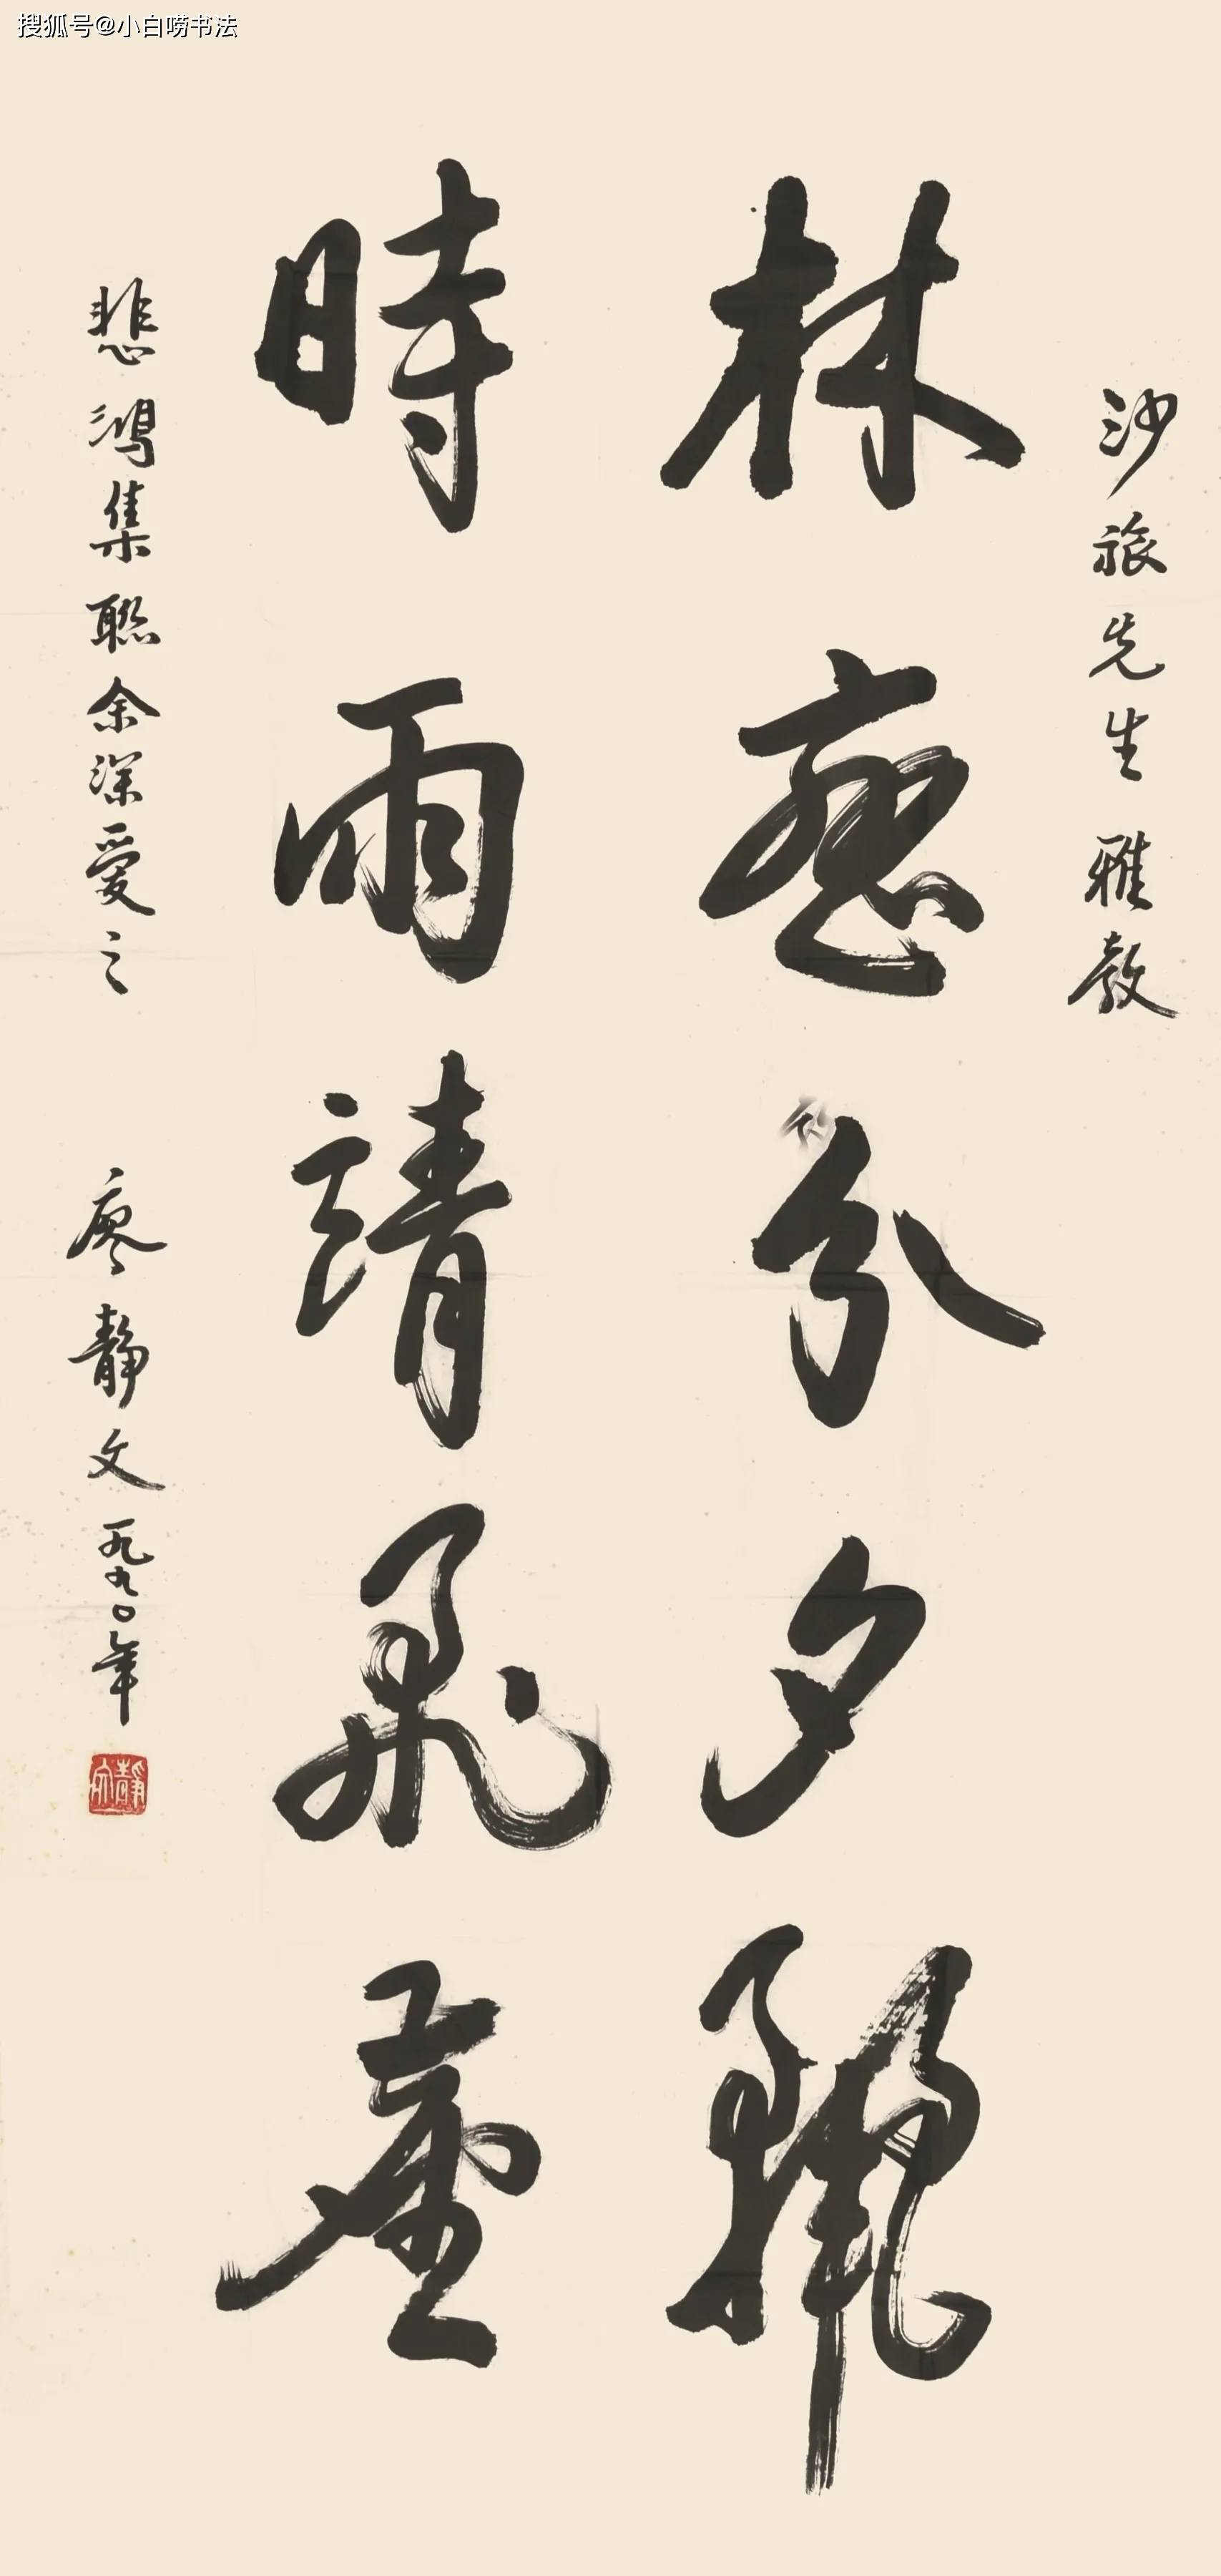 搜狐号@小白唠书法
沙旅先生雅教
林 分夕
時雨靖飛塵
悲鴻集聯余深愛之 廖靜文一九九〇年
靜文